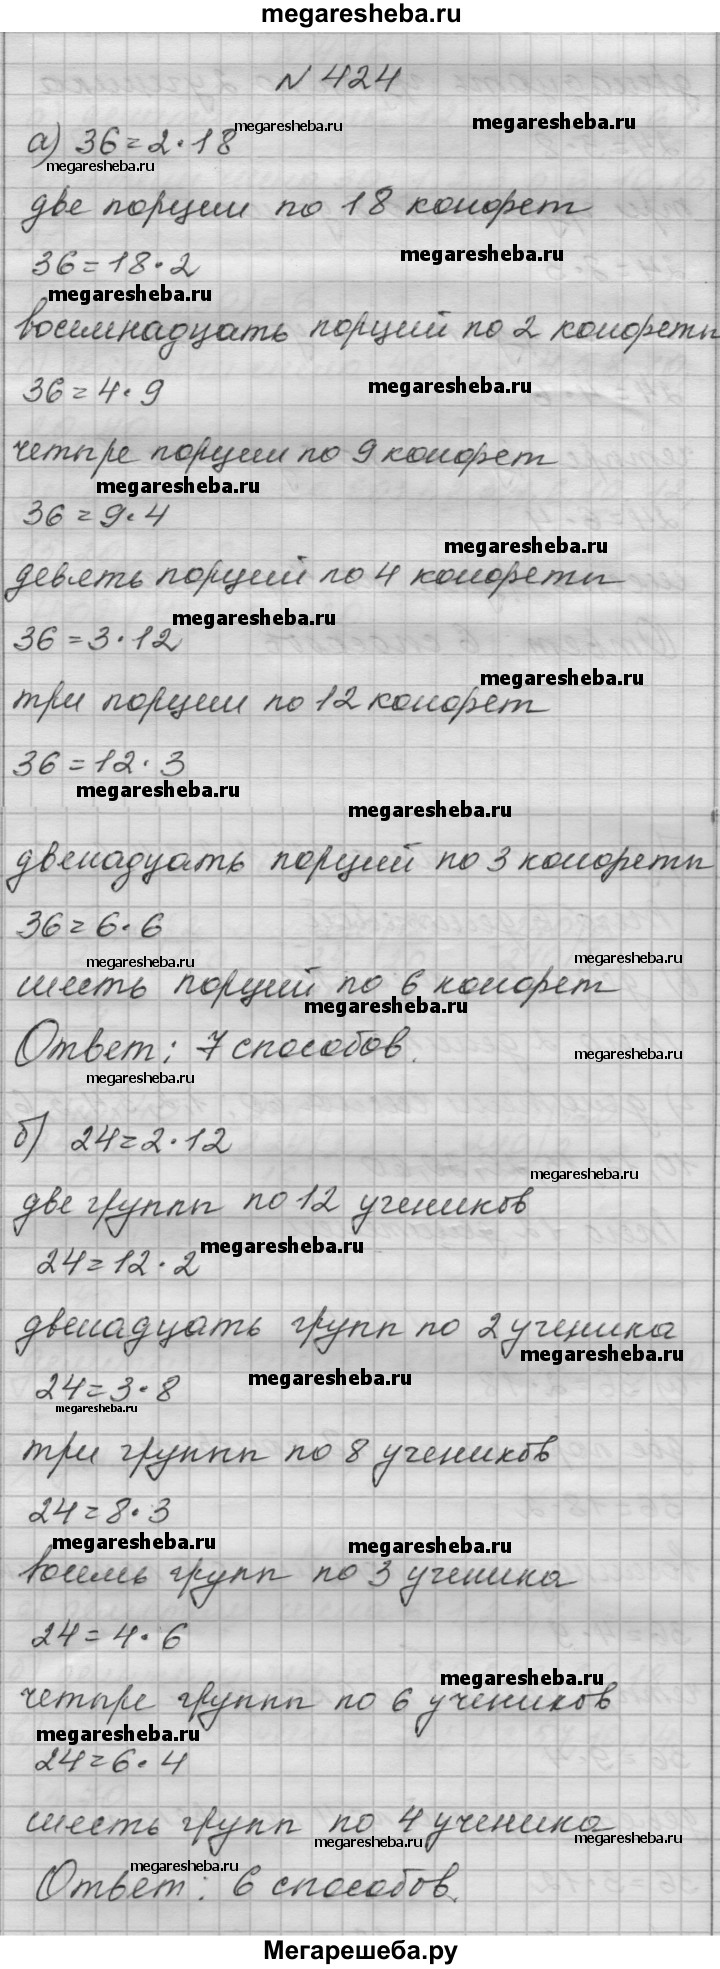 megaresheba.ru
N 424
а) 36=2·18
megaresheba.ru
megaresheba.ru
megaresheba.ru
две порции по 18 конфет
megaresheba.ru
36=18·2
megaresheba.ru
восемнадцать порций по 2 конфеты
36=4·9
megaresheba.ru
четыре порции по 9 конфет
megaresheba.ru
36=9·4
megaresheba.ru
девять порций по 4 конфеты
megaresheba.ru
36=3·12
megaresheba.ru
три порции по 12 конфет
36=12·3
megaresheba.ru
megaresheba.ru
двенадцать порций по 3 конфеты
36=6·6
megaresheba.ru
megaresheba.ru
шесть порций по 6 конфет
megaresheba.ru
Ответ: 7 способов.
megaresheba.ru
megaresheba.ru
б) 24=2·12
megaresheba.ru
две группы по 12 учеников
megaresheba.ru
24=12·2
двенадцать групп по 2 ученика
megaresheba.ru
megaresheba.ru
24=3·8
megaresheba.ru
три группы по 8 учеников
24=8·3
megaresheba.ru
megaresheba.ru
восемь групп по 3 ученика
24=4·6
megaresheba.ru
четыре группы по 6 учеников
megaresheba.ru
24=6·4
шесть групп по 4 ученика
megaresheba.ru
megaresheba.ru
megaresheba.ru
Ответ: 6 способов.
Мегарешеба.ру